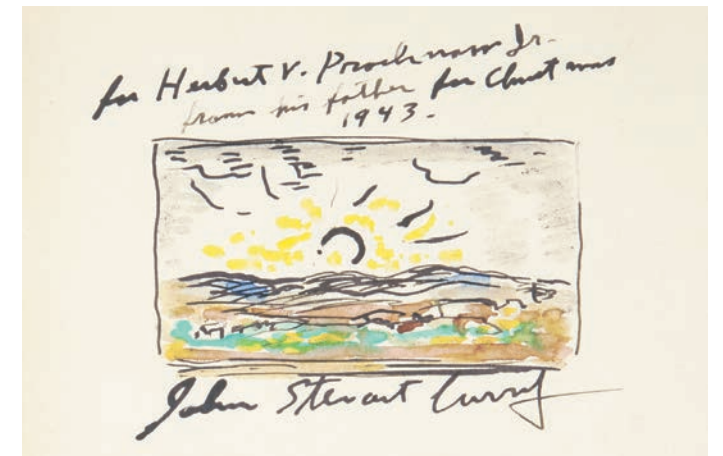 for Herbert V. Prochnow Jr.
from his father for Christmas
1943.
John Steuart Curry